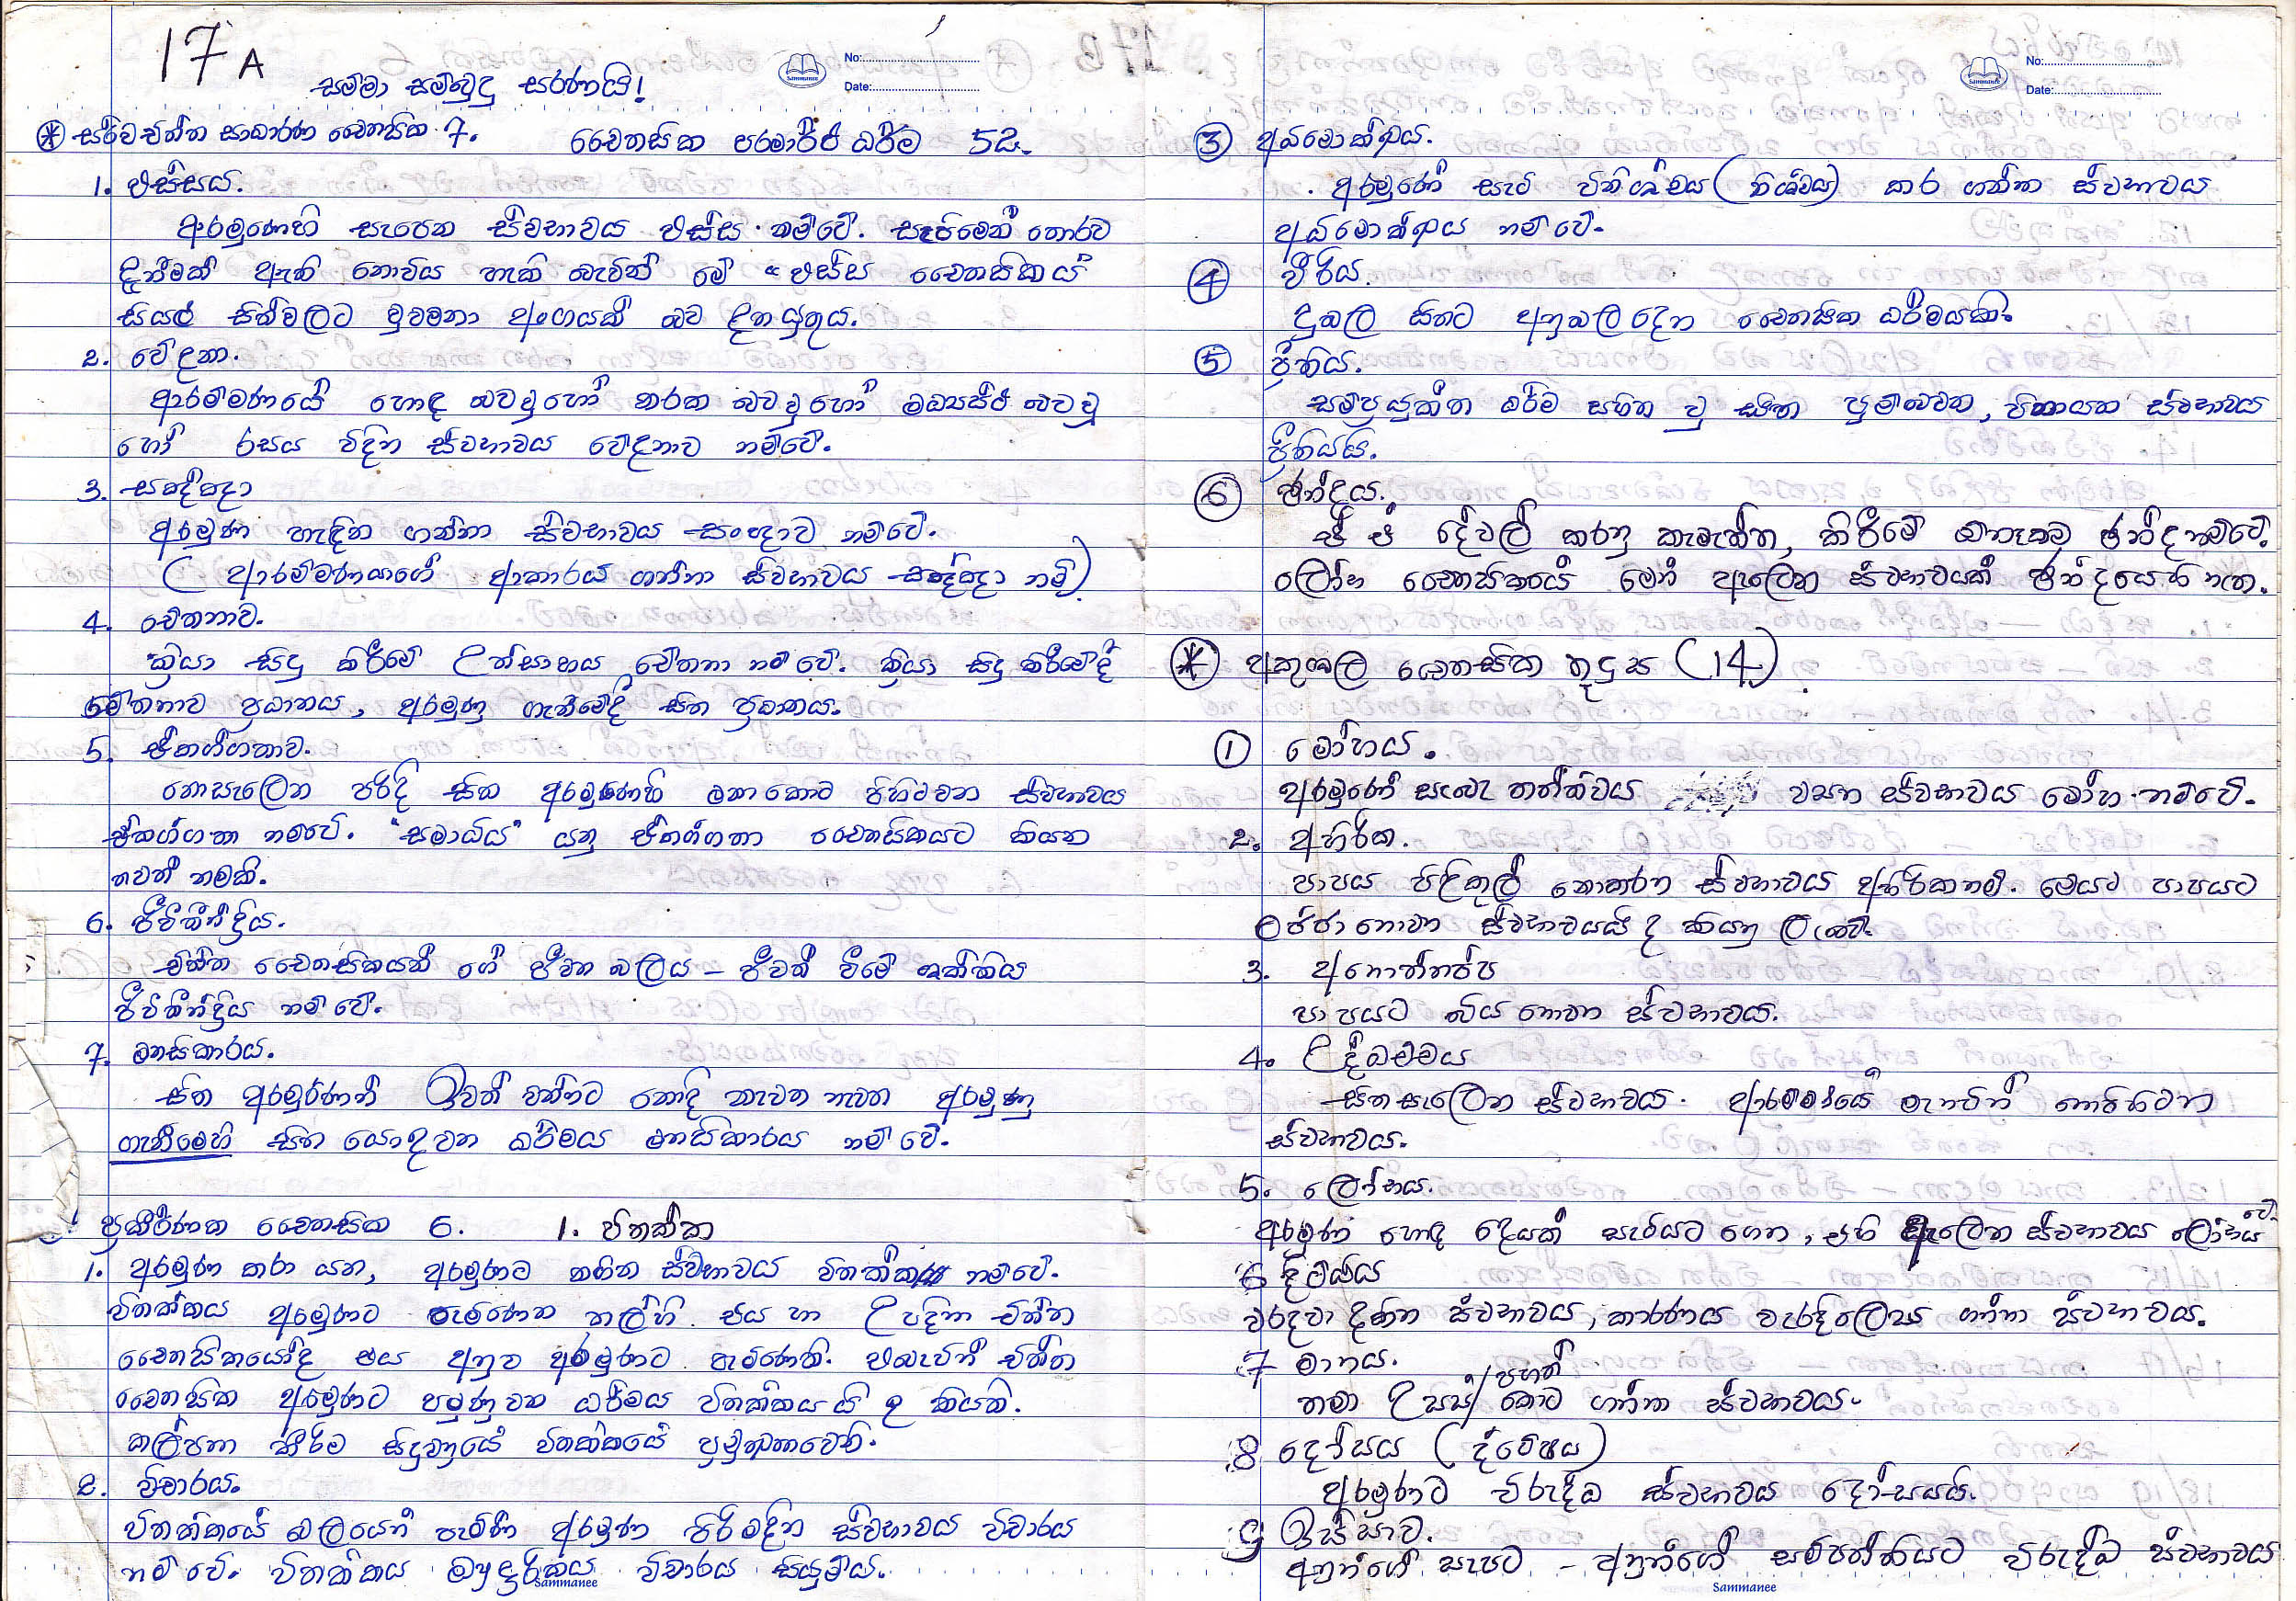 17A
No:
Date:
සම්මා සම්බුදු සරණයි!
* සර්වචිත්ත සාධාරණ චෛතසික 7.
චෛතසික පරමාර්ථ ධර්ම 52.
1. ඵස්සය.
ආරමුණෙහි සැපෙන ස්වභාවය ඵස්ස නම්වේ. සැපීමෙන් තොරව
දැනීමක් ඇති නොවිය හැකි බැවින් මේ ඵස්ස චෛතසිකය
සියලු සිත්වලට වුවමනා අංගයක් බව දතයුතුය.
2. වේදනා.
ආරම්මණයේ හොඳ බවවූ හෝ නරක බවවූ හෝ මධ්‍යස්ථ බවවූ
හෝ රසය විදින ස්වභාවය වේදනාව නම්වේ.
3. සඤ්ඤා
අරමුණ හැඳින ගන්නා ස්වභාවය සංඥාව නම්වේ.
(ආරම්මණයාගේ ආකාරය ගන්නා ස්වභාවය සඤ්ඤා නම්)
4. චේතනාව.
ක්‍රියා සිදු කිරීමේ උත්සාහය චේතනා නම් වේ. ක්‍රියා සිදු කිරීමේදී
චේතනාව ප්‍රධානය, අරමුණු ගැනීමේදී සිත ප්‍රධානය.
5. ඒකග්ගතාව.
නොසැලෙන පරිදි සිත අරමුණෙහි මනා කොට පිහිටවන ස්වභාවය
ඒකග්ගතා නම්වේ. "සමාධිය" යනු ඒකග්ගතා චෛතසිකයට කියන
තවත් නමකි.
6. ජීවිතින්ද්‍රිය.
චිත්ත චෛතසිකයන් ගේ ජීවන බලය – ජීවත් වීමේ ශක්තිය
ජීවිතින්ද්‍රිය නම් වේ.
7. මනසිකාරය.
සිත අරමුණින් ඉවත් වන්නට නොදී නැවත නැවත අරමුණු
ගැනීමෙහි සිත යොදවන ධර්මය මනසිකාරය නම් වේ.
ප්‍රකීර්ණක චෛතසික 6. 1. විතක්ක
1. අරමුණ කරා යන, අරමුණට නඟින ස්වභාවය විතක්ක නම්වේ.
විතක්කය අරමුණට පැමිණෙන කල්හි එය හා උපදිනා චිත්ත
චෛතසිකයෝද එය අනුව අරමුණට පැමිණෙති. එබැවින් චිත්ත
චෛතසික අරමුණට පමුණුවන ධර්මය විතක්කය යි ද කියති.
කල්පනා කිරීම සිදුවනුයේ විතක්කයේ
2. විචාරය.
විතක්කයේ බලයෙන් පැමිණි අරමුණ පිරිමදින ස්වභාවය විචාරය
නම් වේ. විතක්කය ඖදාරිකය විචාරය සියුම්ය.
Sammanee
No:
Date:
3 අධිමොක්ඛය.
අරමුණේ සැටි විනිශ්චය (නිශ්චය) කර ගන්න ස්වභාවය
අධිමොක්ඛය නම් වේ.
4 වීරිය.
දුබල සිතට අනුබල දෙන චෛතසික ධර්මයකි.
5 ප්‍රීතිය.
සම්ප්‍රයුක්ත ධර්ම සහිත වූ සිත පුම්බවන, පිනායන ස්වභාවය
ප්‍රීතියයි.
6 ඡන්දය.
ඒ ඒ දේවල් කරනු කැමැත්ත, කිරීමේ ඕනෑකම ඡන්ද නම්වේ.
ලෝභ චෛතසිකයේ මෙන් ඇලෙන ස්වභාවයක් ඡන්දයෙහි නැත.
* අකුශල චෛතසික තුදුස (14)
1 මෝහය.
අරමුණේ සැබෑ තත්ත්වය වසන ස්වභාවය මෝහ නම්වේ.
2. අහිරික.
පාපය පිළිකුල් නොකරන ස්වභාවය අහිරික නම්. මෙයට පාපයට
ලජ්ජා නොවන ස්වභාවයයි ද කියනු ලැබේ.
3. අනොත්තප්ප
පාපයට බිය නොවන ස්වභාවය.
4. උද්ධච්චය
සිත සැලෙන ස්වභාවය. ආරම්මණයේ මැනවින් නොපිහිටන
ස්වභාවය.
5. ලෝභය.
අරමුණ හොඳ දෙයක් සැටියට ගෙන, එහි ඇලෙන ස්වභාවය ලෝභය වේ.
6 දිට්ඨිය
වරදවා දකින ස්වභාවය, කාරණය වැරදිලෙස ගන්නා ස්වභාවය.
7 මානය.
තමා උසස්/පහත් කොට ගන්නා ස්වභාවය.
8 දෝසය (ද්වේෂය)
අරමුණට විරුද්ධ ස්වභාවය දෝසයයි.
9 ඉස්සාව.
අනුන්ගේ සැපට – අනුන්ගේ සම්පත්තියට විරුද්ධ ස්වභාවය
Sammanee